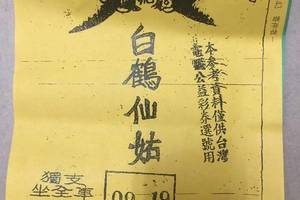 白鶴仙姑
本參考資料僅供台灣
電腦公益彩券選號用
獨支
坐全車
09 19